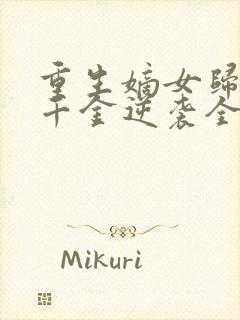 重生嫡女归
千金逆袭全
Mikuri